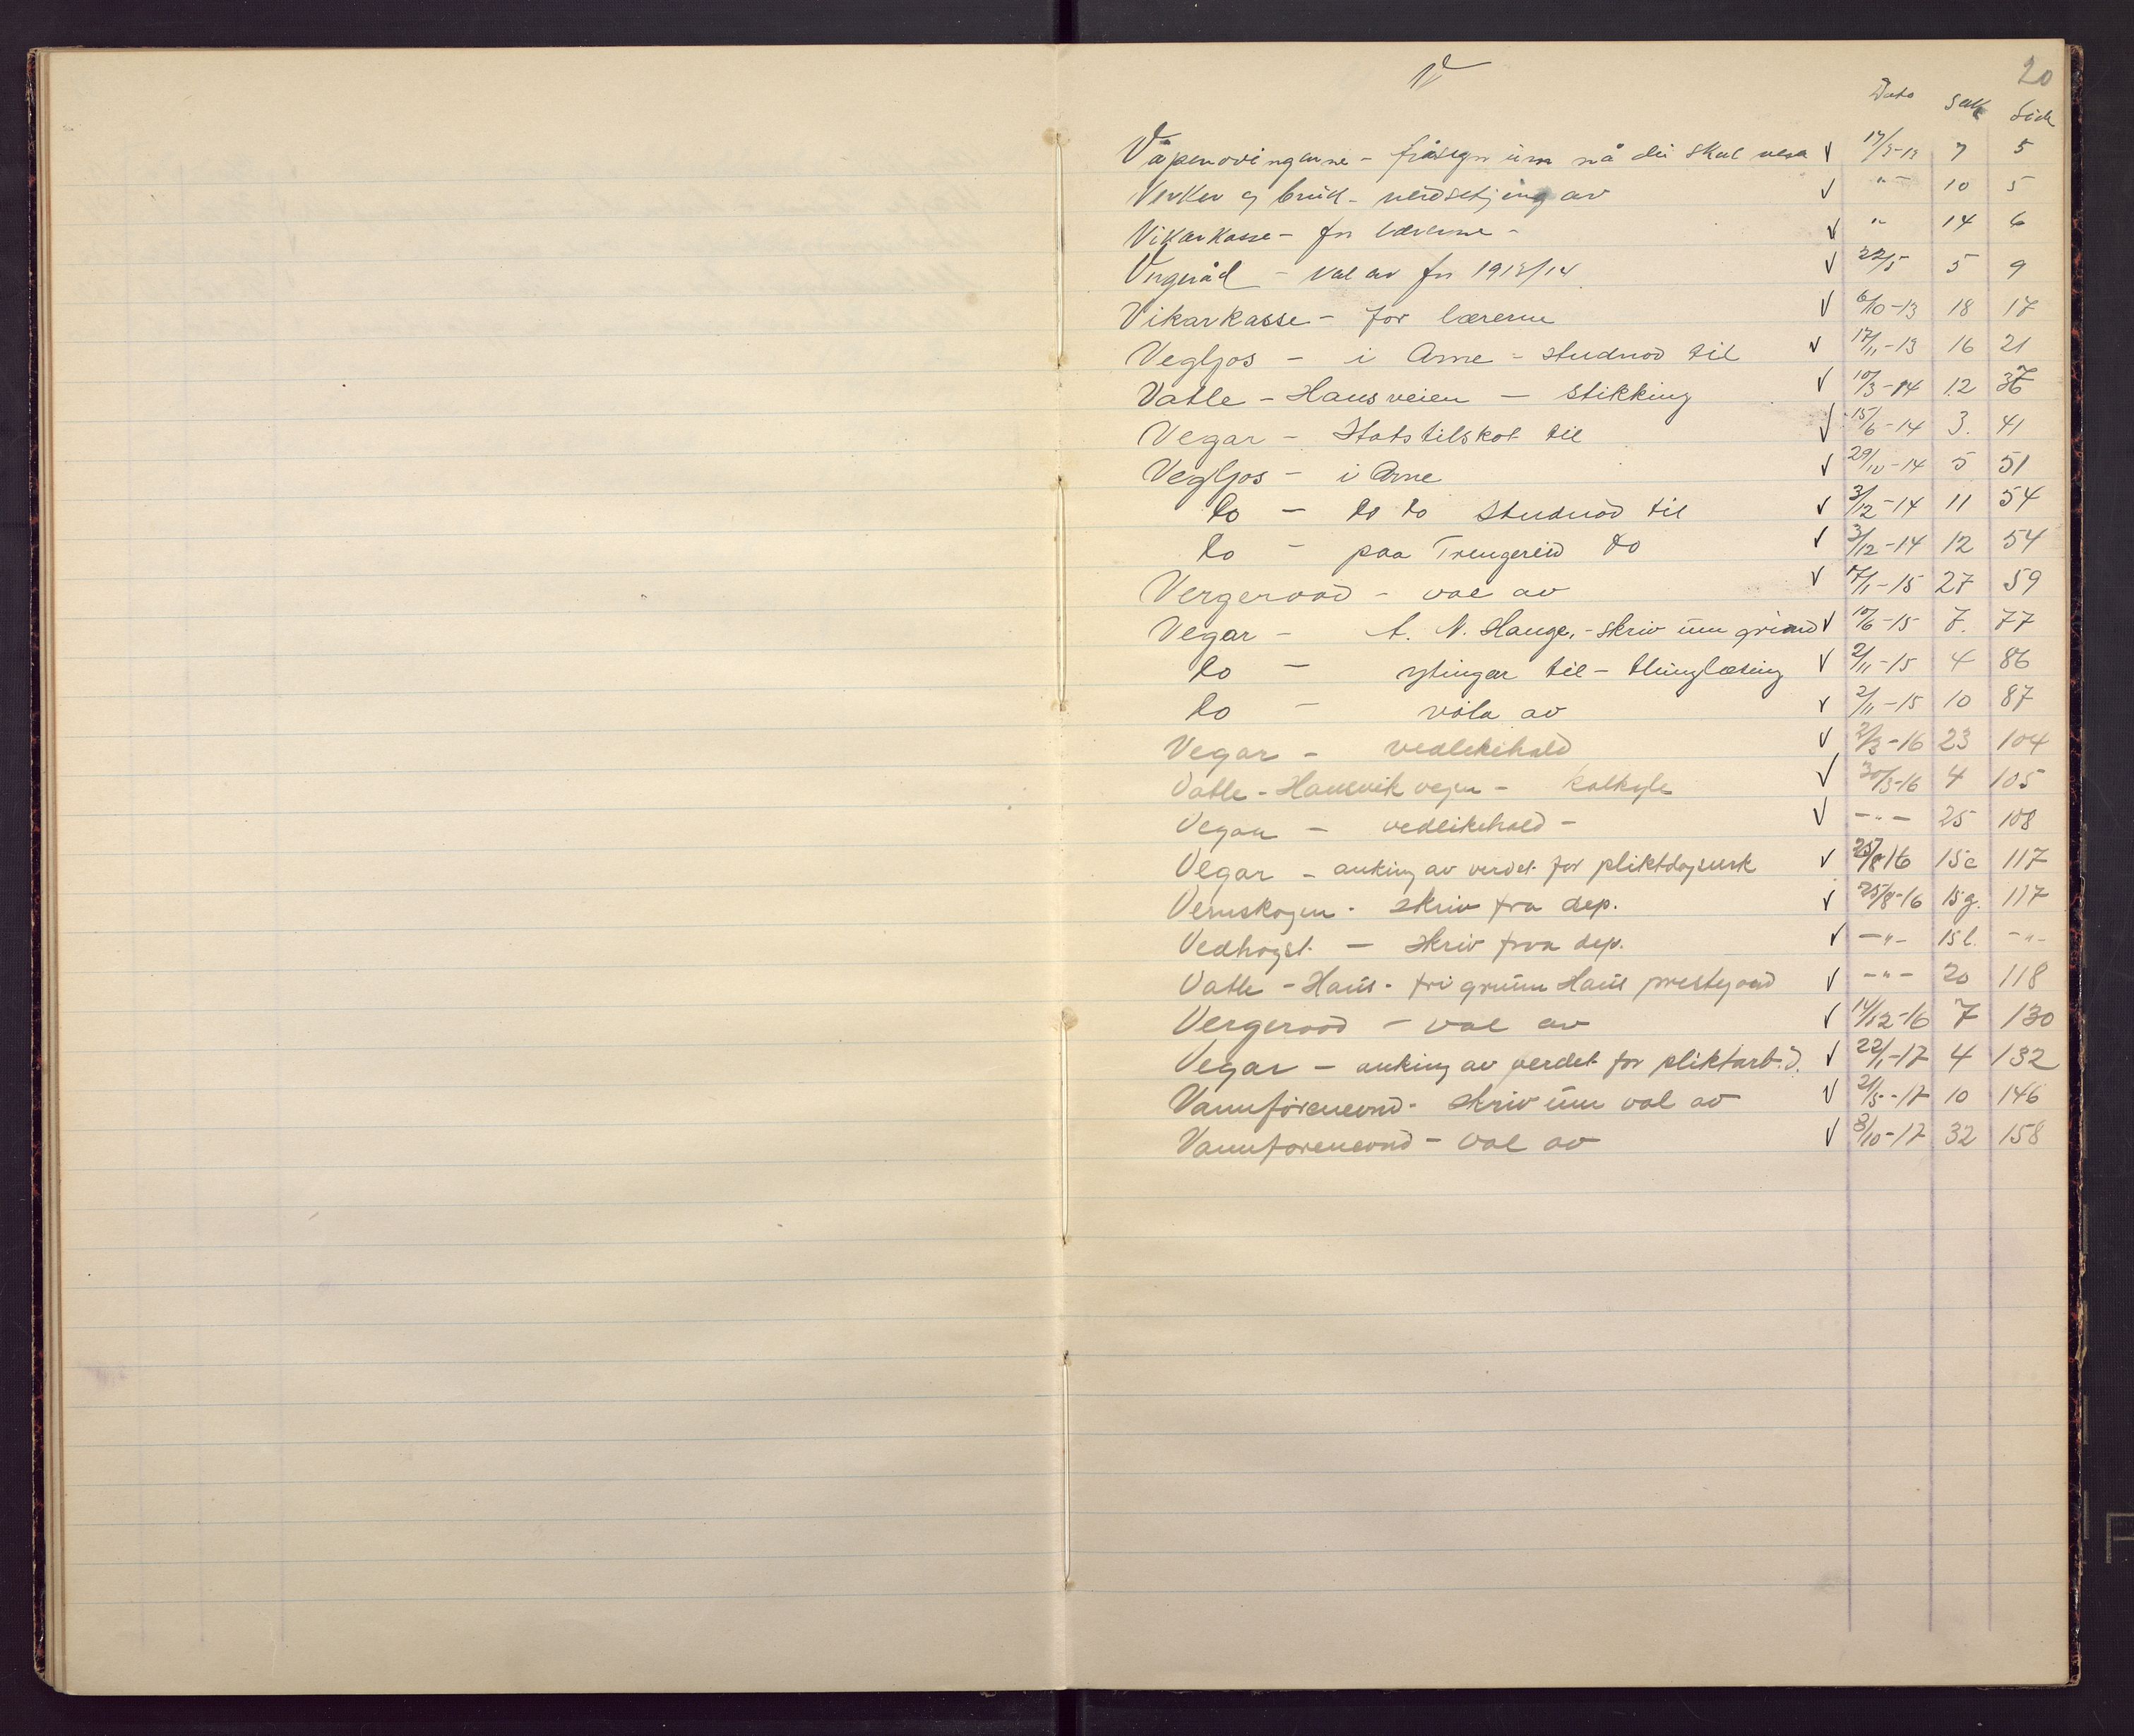 V
20
Dato Sak Side
Våpenøvingarne - fråsegn um nå dei skal vera √ 17/3-13 7 5
Verker og bruk - verdsetjing av √ " - 10 5
Vikarkasse - for lærerne - √ " 14 6
Vergeråd - val av for 1913/14 √ 22/5 5 9
Vikarkasse - for lærerne √ 6/10-13 18 17
Vegljos - i Arne - studnad til √ 17/11-13 16 21
Vatle - Hausveien - stikking √ 10/3-14 12 37
Vegar - Statstilskot til √ 15/6-14 3. 41
Vegljos - i Arne √ 29/10-14 5 51
do - do do studnad til √ 3/12-14 11 54
do - paa Trengereid do √ 3/12-14 12 54
Vergeraad - val av √ 17/1-15 27 59
Vegar - A. N. Hauge, - skriv um grind √ 10/6-15 7. 77
do - ytingar til - thinglæsing √ 2/11-15 4 86
do - vøla av √ 2/11-15 10 87
Vegar - vedlikehald √ 2/3-16 23 104
Vatle - Hausvik vegen - kalkyle √ 30/3-16 4 105
Vegar - vedlikehald - √ -"- 25 108
Vegar - auking av verdet for pliktdagsverk √ 25/8-16 15c 117
Verneskogen - skriv fra dep. √ 25/8-16 15g. 117
Vedhogst - skriv fraa dep. √ -"- 15l. -"-
Vatle - Haus - fri grunn Haus prestegard √ -"- 20 118
Vergeraad - val av √ 14/12-16 7 130
Vegar - auking av verdet for pliktarb.d. √ 22/1-17 4 132
Vannføreneevnd - skriv um val av √ 21/5-17 10 146
Vannføreneevnd - val av √ 3/10-17 32 158